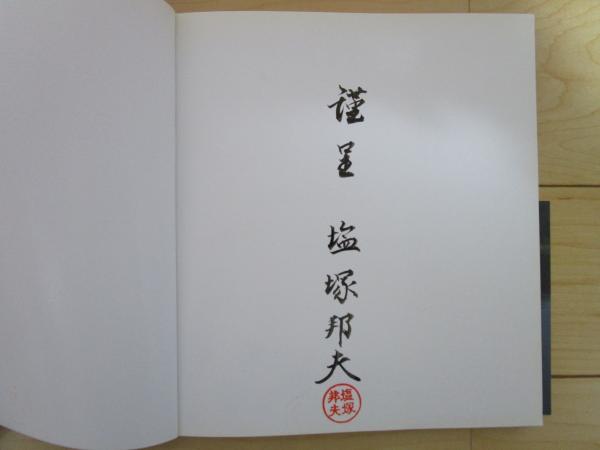 謹呈 塩塚邦夫
塩塚
邦夫